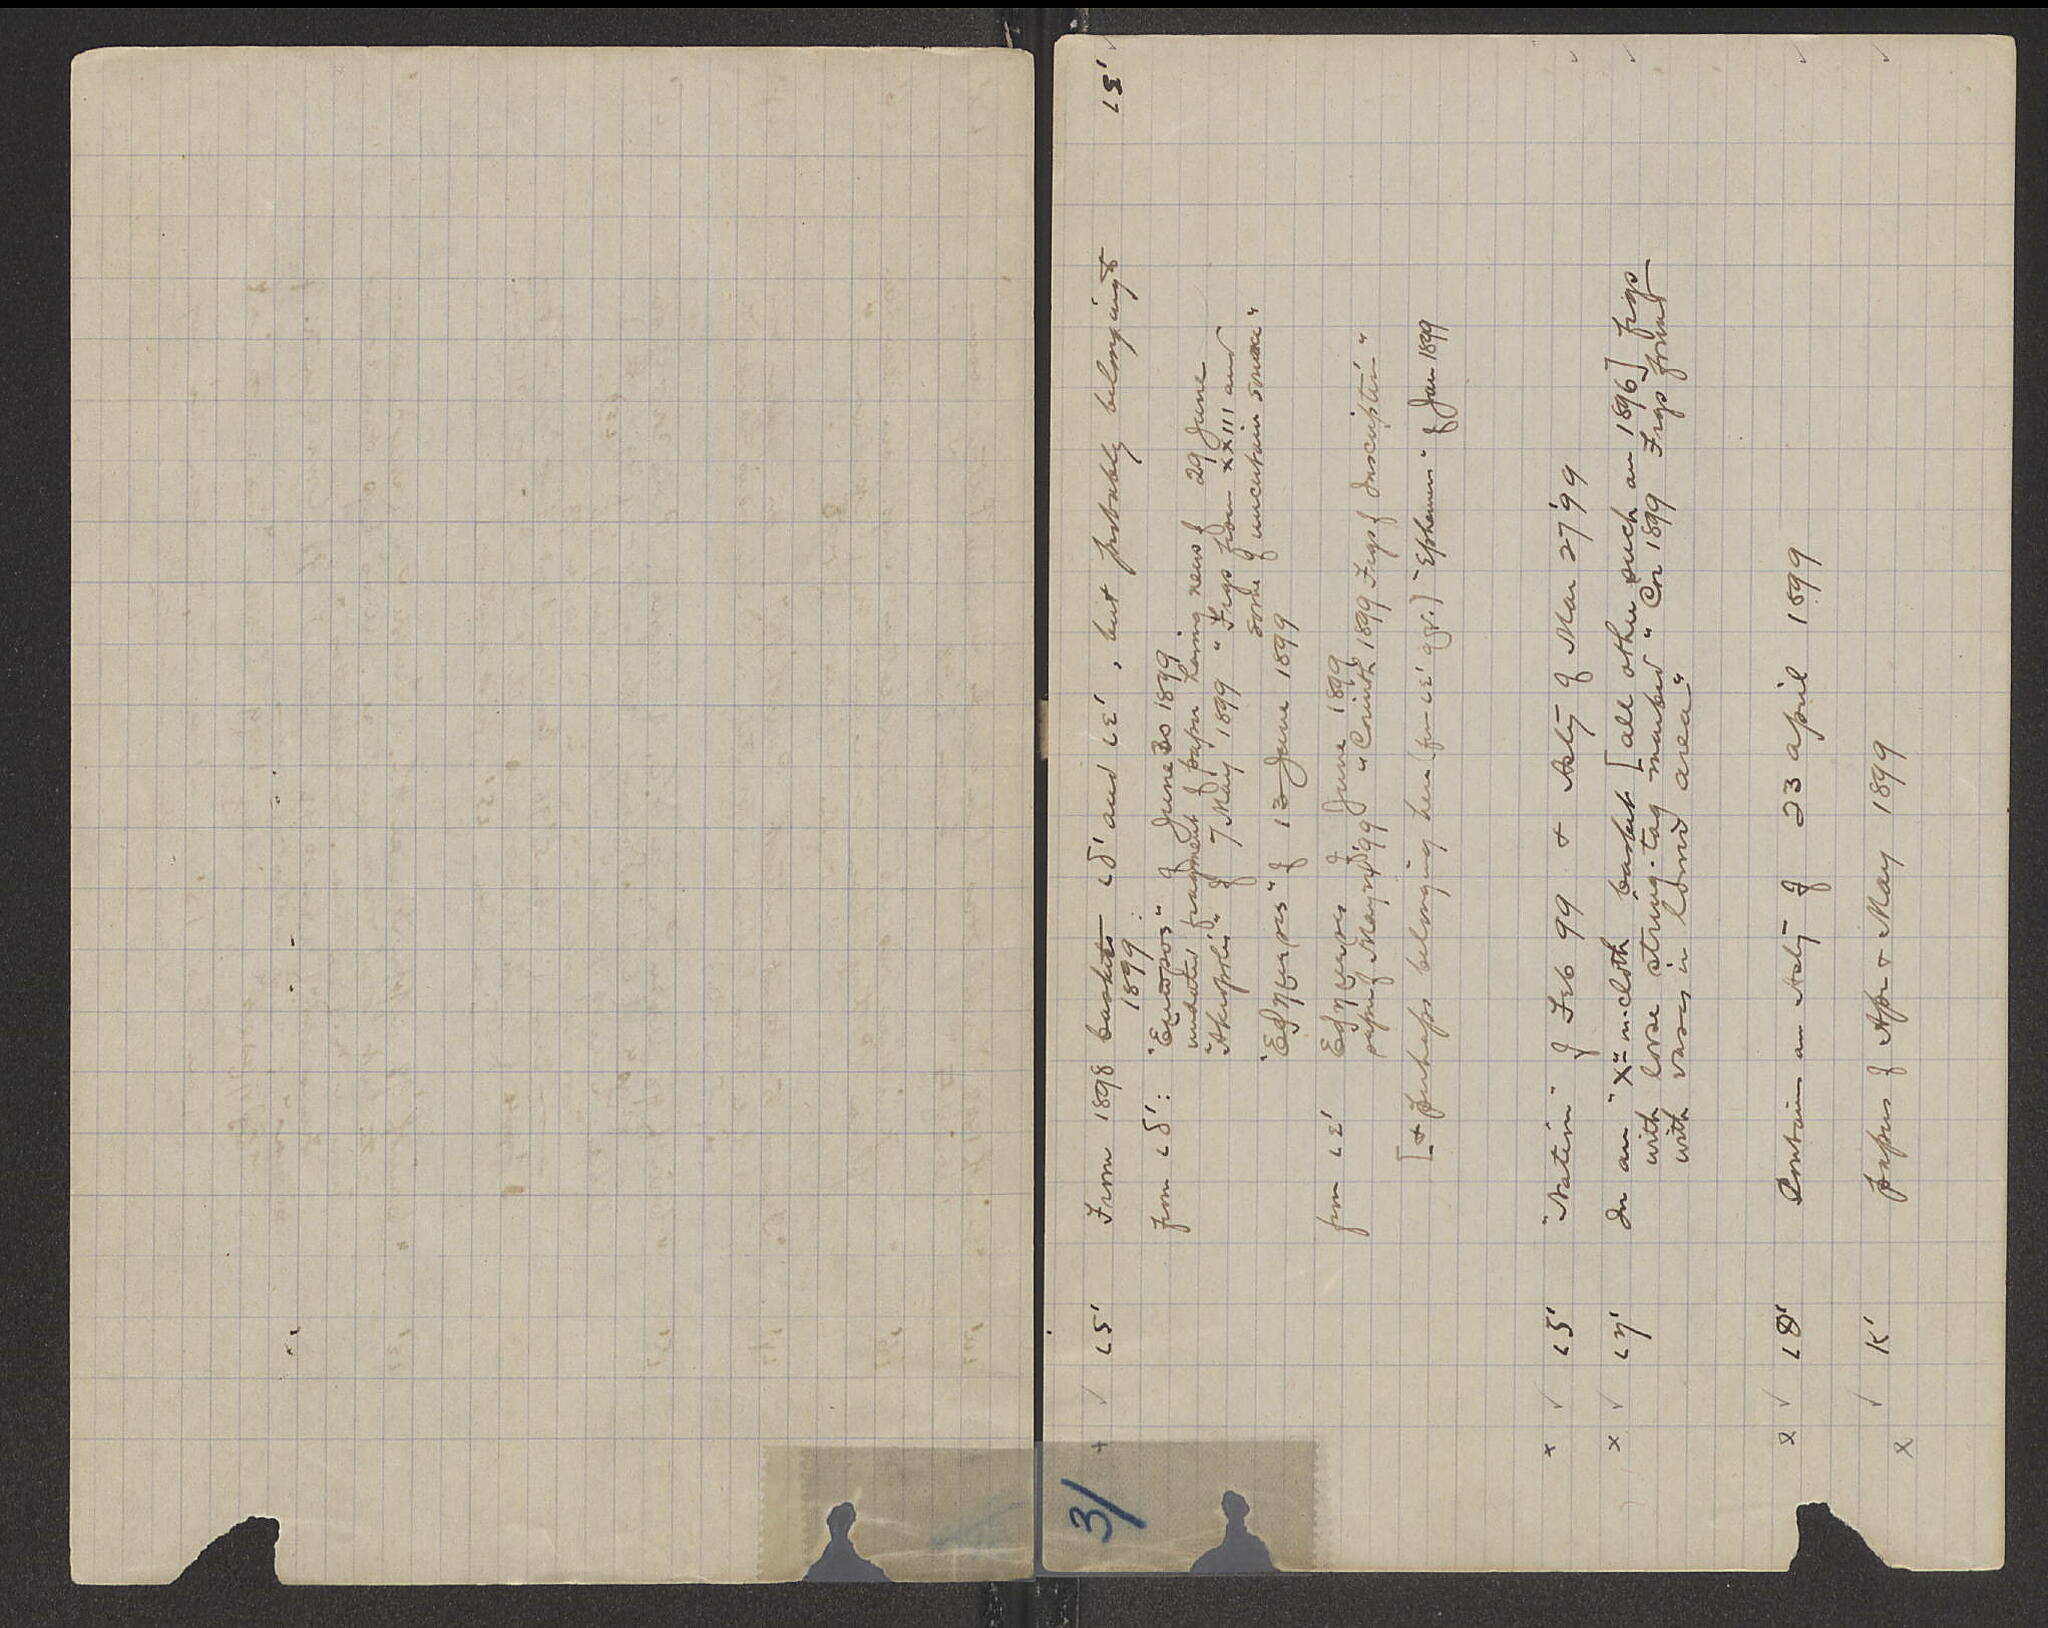 3/
ιε' ✓
+ ✓ ις' From 1898 baskets ιδ' and ιε', but probably belonging to
1899 :
from ιδ': "Εμπρος" of June 30 1899
undated fragment of paper having news of 29 June
"Akropolis" of 7 May 1899 "Frgs from XXIII and
some of uncertain source"
"Εφημερις" of 13 June 1899
from ιε' Εφημερις of June 1899
paper of May '99 "Corinth 1899 Frgs of Inscription"
[+ perhaps belonging here (from ιε' q.v.) "Ephemeris" of Jan 1899
x ✓ ιζ' "Nation" of Feb 99 + Asty of Mar 27 '99 ✓
x ✓ ιη' In an "X" m-cloth basket [all other such are 1896] frgs ✓
with lose strung-tag marked "Cor 1899 Frgs found
with vases in lower area"
x ✓ ιθ' Contain an Asty of 23 April 1899 ✓
x ✓ κ' papers of Apr + May 1899 ✓